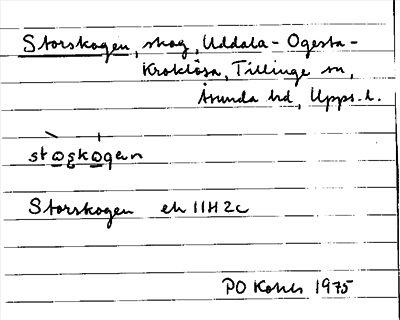 Storskogen, skog, Uddala- Ogesta-
Kroklösa, Tillinge sn,
Åsunda hd, Upps. l.
Storskogen ek 11H2c
PO 1975